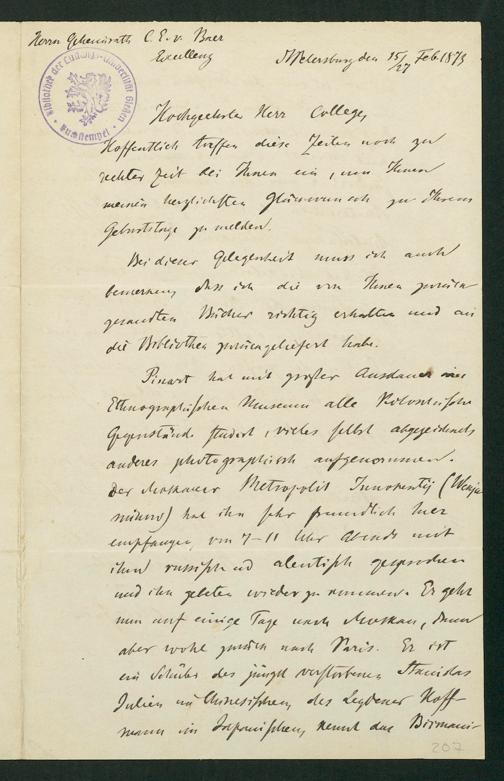 Herrn Geheimrath C. E. v. Baer
Excellenz
St Petersburg den 15/27 Feb. 1873
Bibliothek der Ludwigs-Universität Gießen
Buchstempel
Hochgeehrter Herr College,
Hoffentlich treffen diese Zeilen noch zu
rechter Zeit bei Ihnen ein, um Ihnen
meinen herzlichsten Glückwunsch zu Ihrem
Geburtstage zu melden.
Bei dieser Gelegenheit muss ich auch
bemerken, dass ich die von Ihnen zurück
gesandten Bücher richtig erhalten und an
die Bibliothek zurückgeliefert habe.
Pinart hat mit großer Ausdauer im
Ethnographischen Museum alle Koloschische
Gegenstände studirt, vieles selbst abgezeichnet,
anderes photographisch aufgenommen.
Der Moskauer Metropolit Innokentij (Wenja
minow) hat ihn sehr freundlich hier
empfangen, von 7-11 Uhr Abends mit
ihm russisch und aleutisch gesprochen
und ihn gebeten wieder zu kommen. Er geht
nun auf einige Tage nach Moskau, dann
aber wohl zurück nach Paris. Er ist
ein Schüler des jüngst verstorbenen Stanislas
Julien im Chinesischen, des Leydener Hoff-
mann im Japanischen, kennt das Birmani-
207